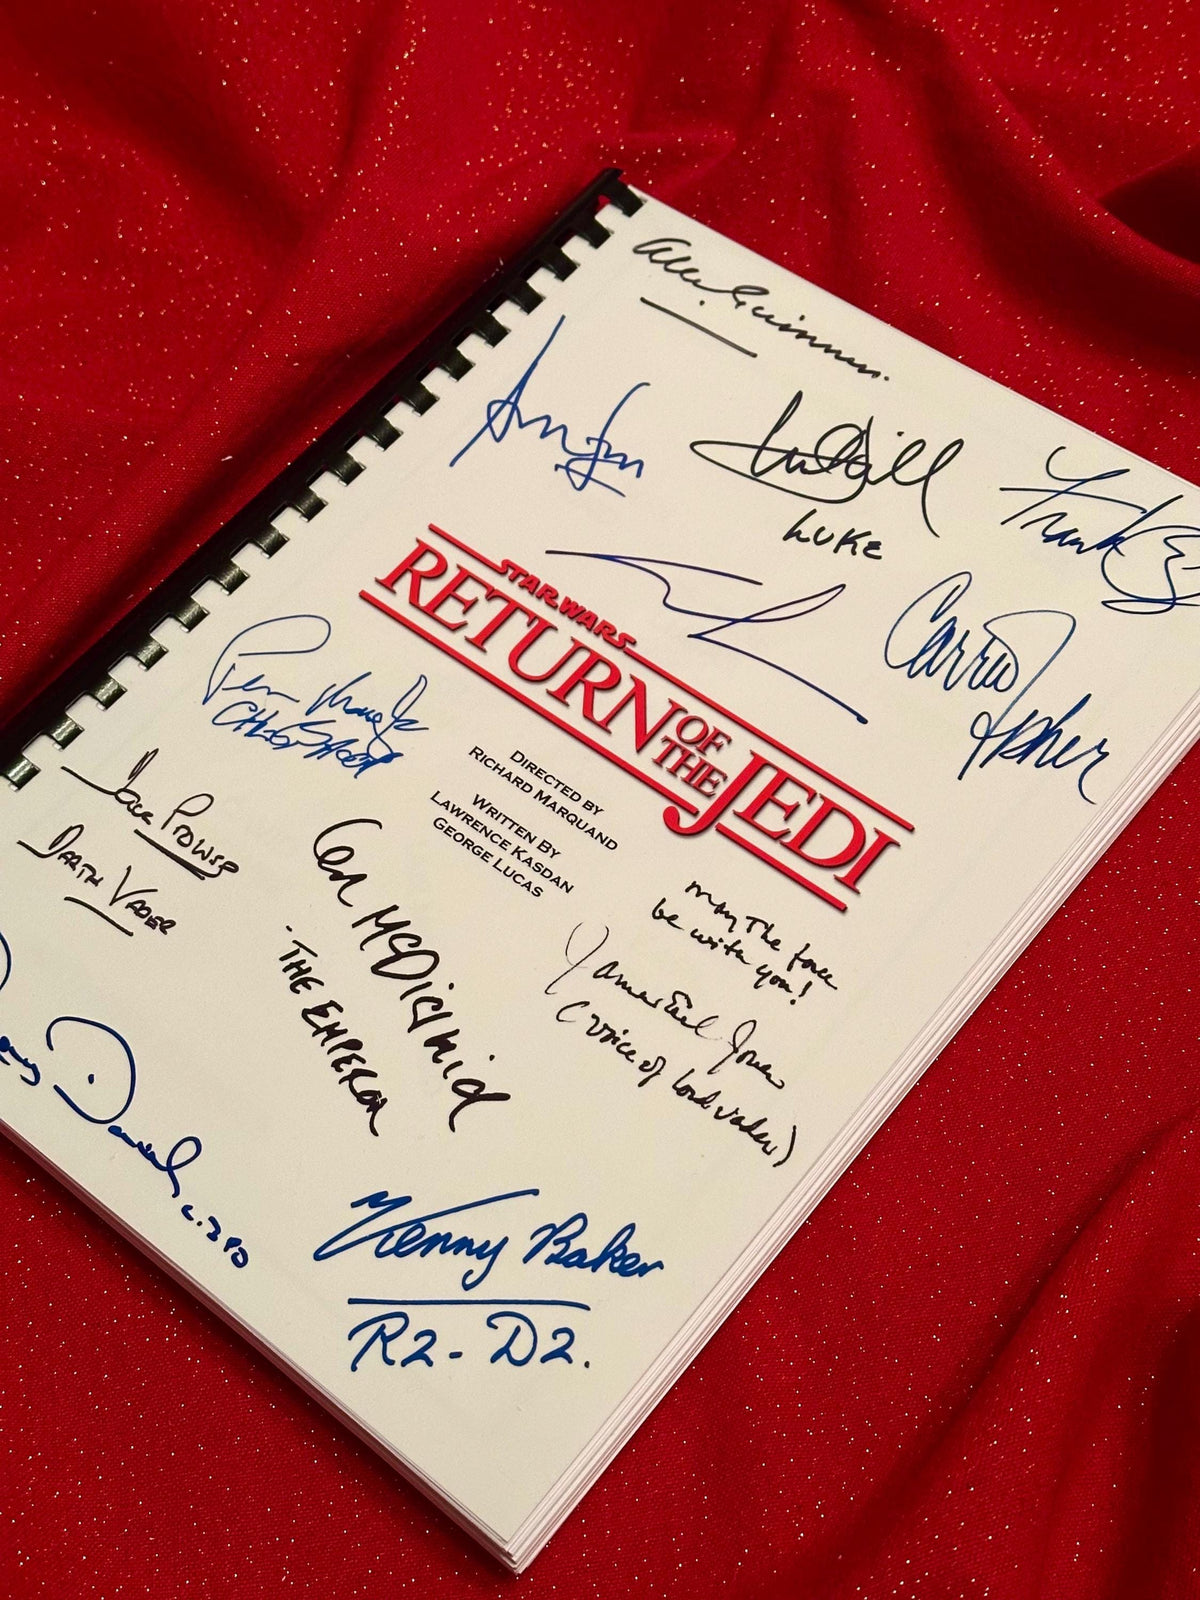 Alec Guinness.
LUKE
Frank Oz
Carrie
Fisher
STAR WARS
RETURN OF THE JEDI
DIRECTED BY
RICHARD MARQUAND
WRITTEN BY
LAWRENCE KASDAN
GEORGE LUCAS
Peter Mayhew
Dave Prowse
DARTH VADER
Ian McDiarmid
- THE EMPEROR
may The force
be with you!
James Earl Jones
(voice of Lord Vader)
Daniels
Kenny Baker
R2-D2.